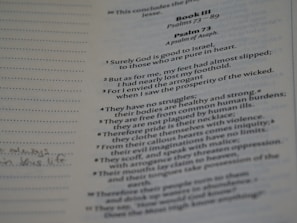 This concludes the
Jesse.
Book III
Psalms 73–89
Psalm 73
A psalm of Asaph.
1 Surely God is good to Israel,
to those who are pure in heart.
2 But as for me, my feet had almost slipped;
I had nearly lost my foothold.
3 For I envied the arrogant
when I saw the prosperity of the wicked.
4 They have no struggles;
their bodies are healthy and strong.
5 They are free from common human burdens;
they are not plagued by human ills.
6 Therefore pride is their necklace;
they clothe themselves with violence.
7 From their callous hearts comes iniquity;
their evil imaginations have no limits.
8 They scoff, and speak with malice;
with arrogance they threaten oppression.
9 Their mouths lay claim to heaven,
and their tongues take possession of the
earth.
10 Therefore their people turn to them
and drink up waters in abundance.
11 They say, "How would God know?
Does the Most High know anything?"
always
in his life